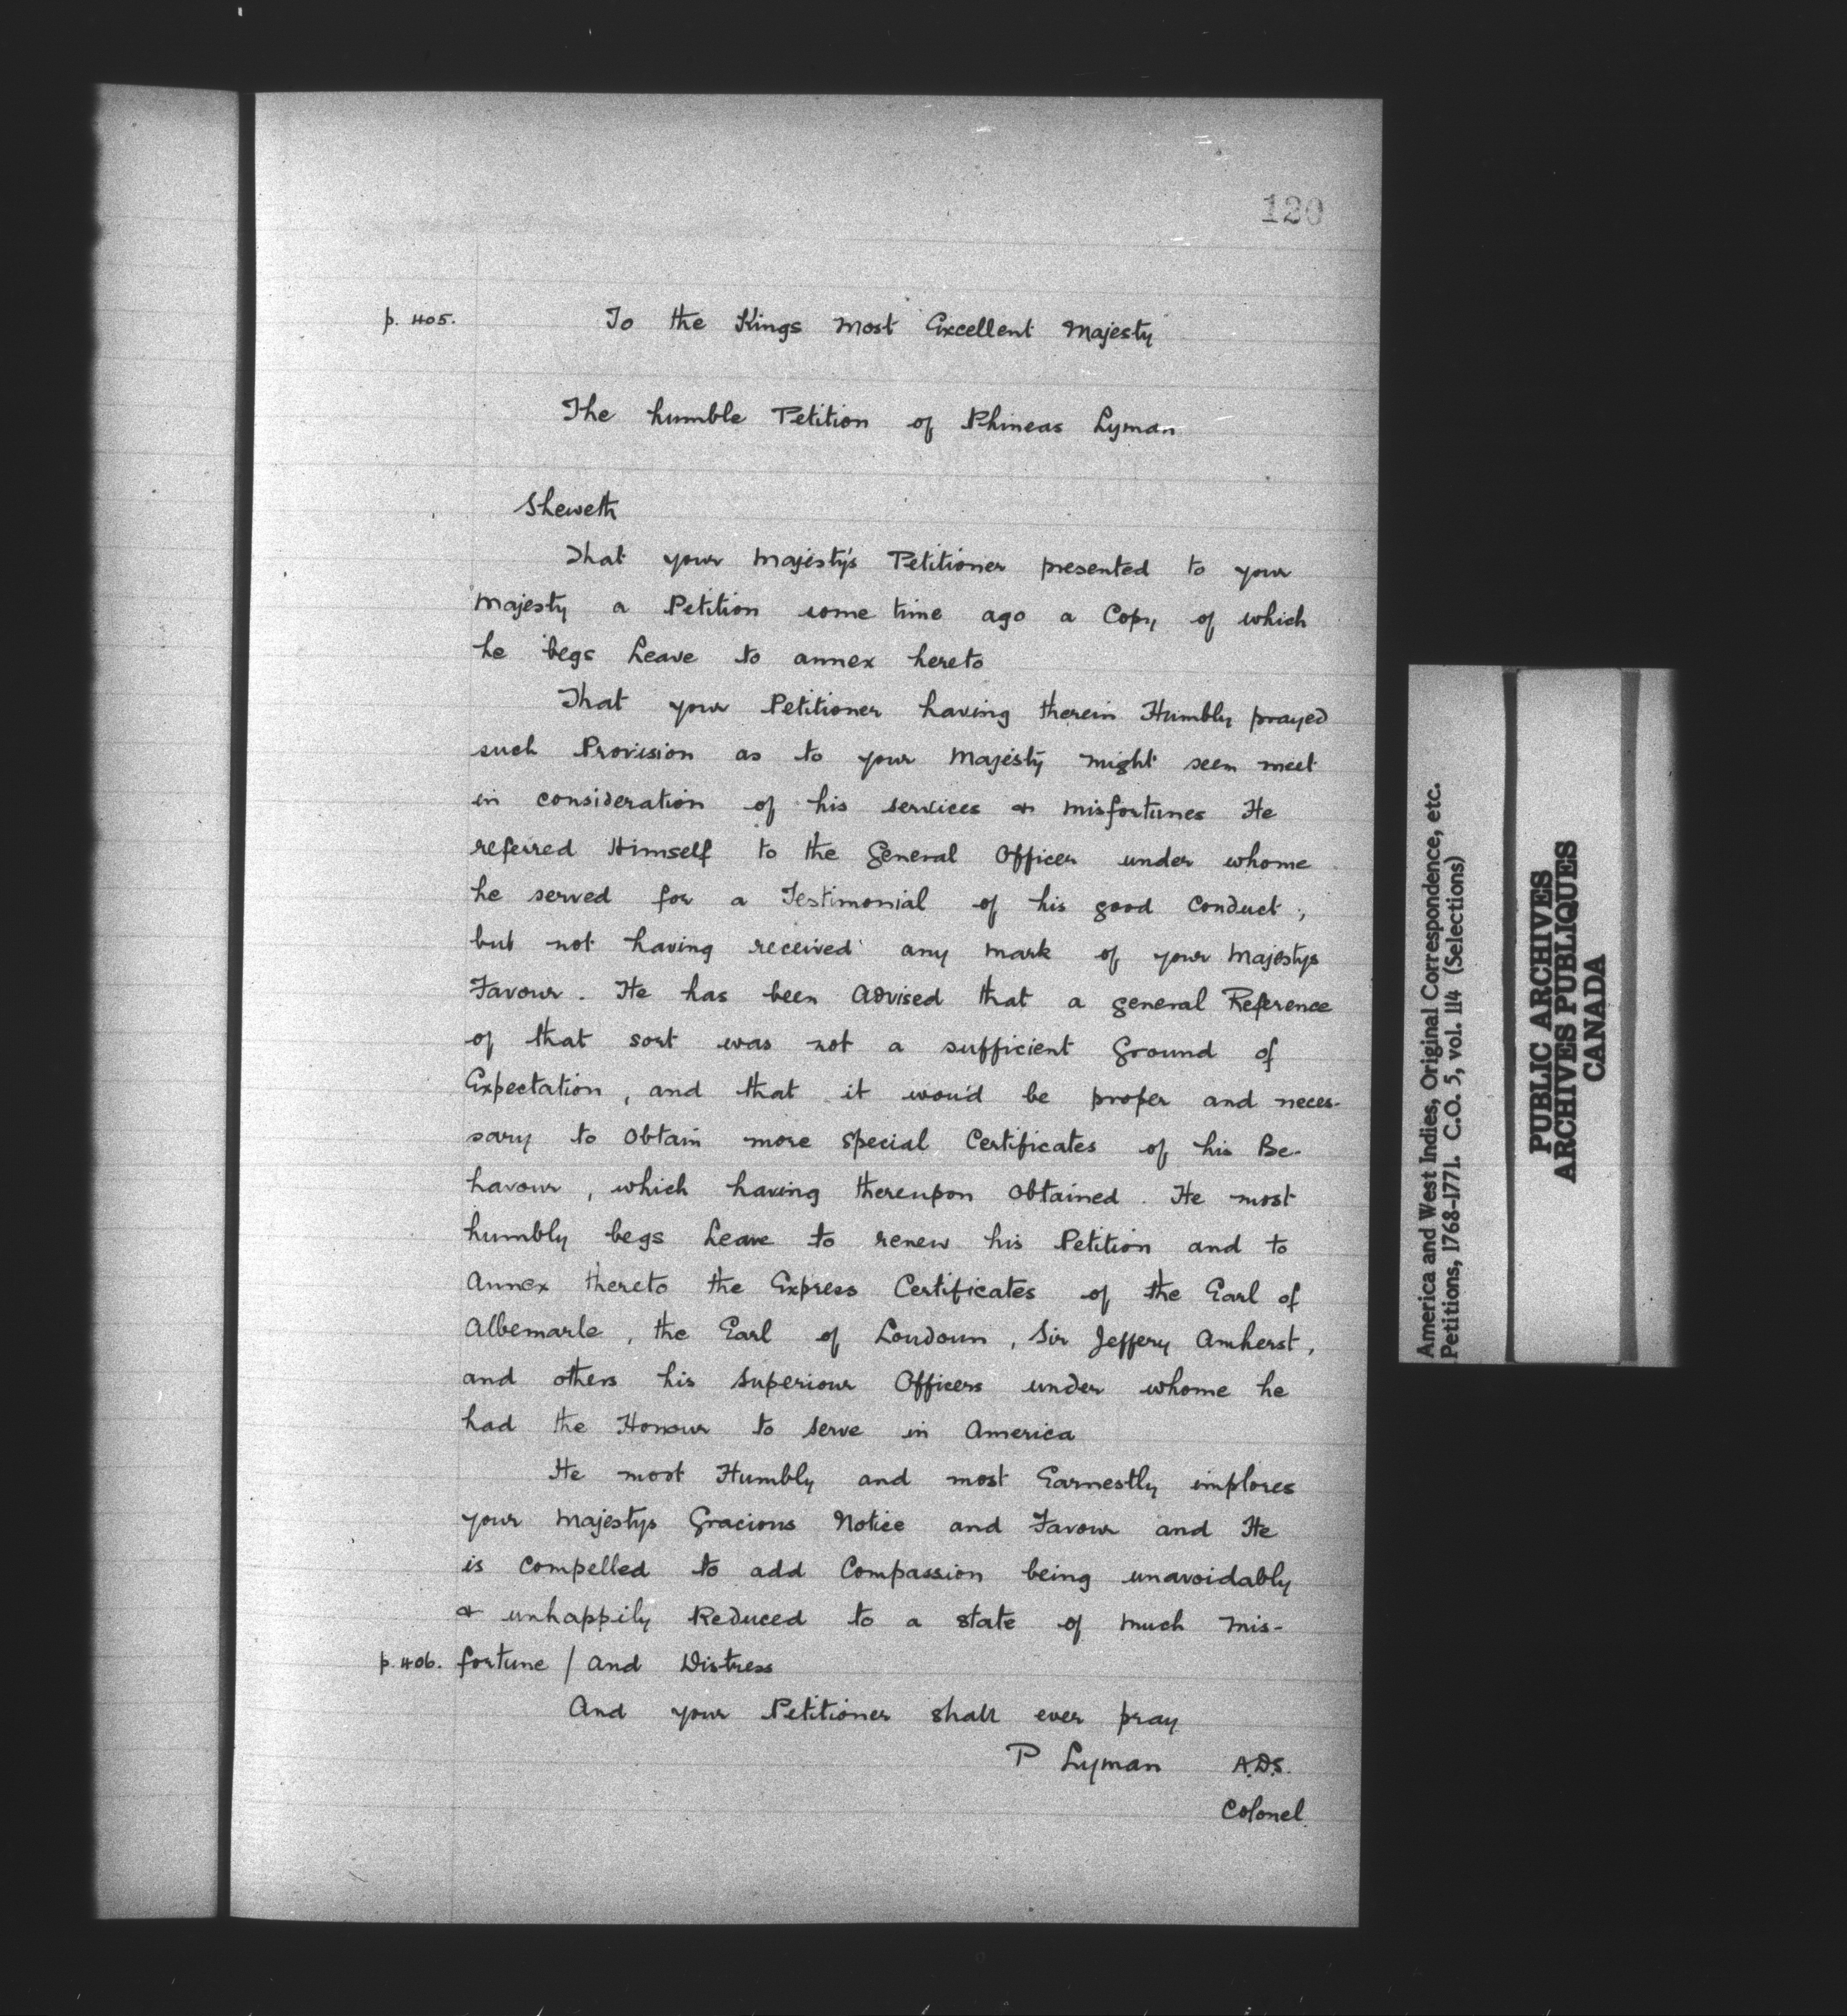 120
p. 405. To the Kings Most Excellent Majesty
The humble Petition of Phineas Lyman
Sheweth
That your Majesty's Petitioner presented to your
Majesty a Petition some time ago a Copy of which
he begs Leave to annex hereto
That your Petitioner having therein Humbly prayed
such Provision as to your Majesty might seem meet
in consideration of his services & misfortunes He
referred Himself to the General Officer under whome
he served for a Testimonial of his good Conduct;
but not having received any mark of your Majestys
Favour. He has been Advised that a general Reference
of that sort was not a sufficient Ground of
Expectation, and that it wou'd be proper and neces-
sary to Obtain more Special Certificates of his Be-
havour, which having thereupon Obtained. He most
humbly begs Leave to renew his Petition and to
Annex thereto the Express Certificates of the Earl of
Albemarle, the Earl of Loudoun, Sir Jeffery Amherst,
and others his Superiour Officers under whome he
had the Honour to Serve in America
He most Humbly and most Earnestly implores
your Majestys Gracious Notice and Favour and He
is Compelled to add Compassion being unavoidably
& unhappily Reduced to a state of Much Mis-
p. 406. fortune / and Distress
And your Petitioner shall ever pray
P Lyman A.D.S.
Colonel.
America and West Indies, Original Correspondence, etc.
Petitions, 1768-1771. C.O. 5, vol. 114 (Selections)
PUBLIC ARCHIVES
ARCHIVES PUBLIQUES
CANADA